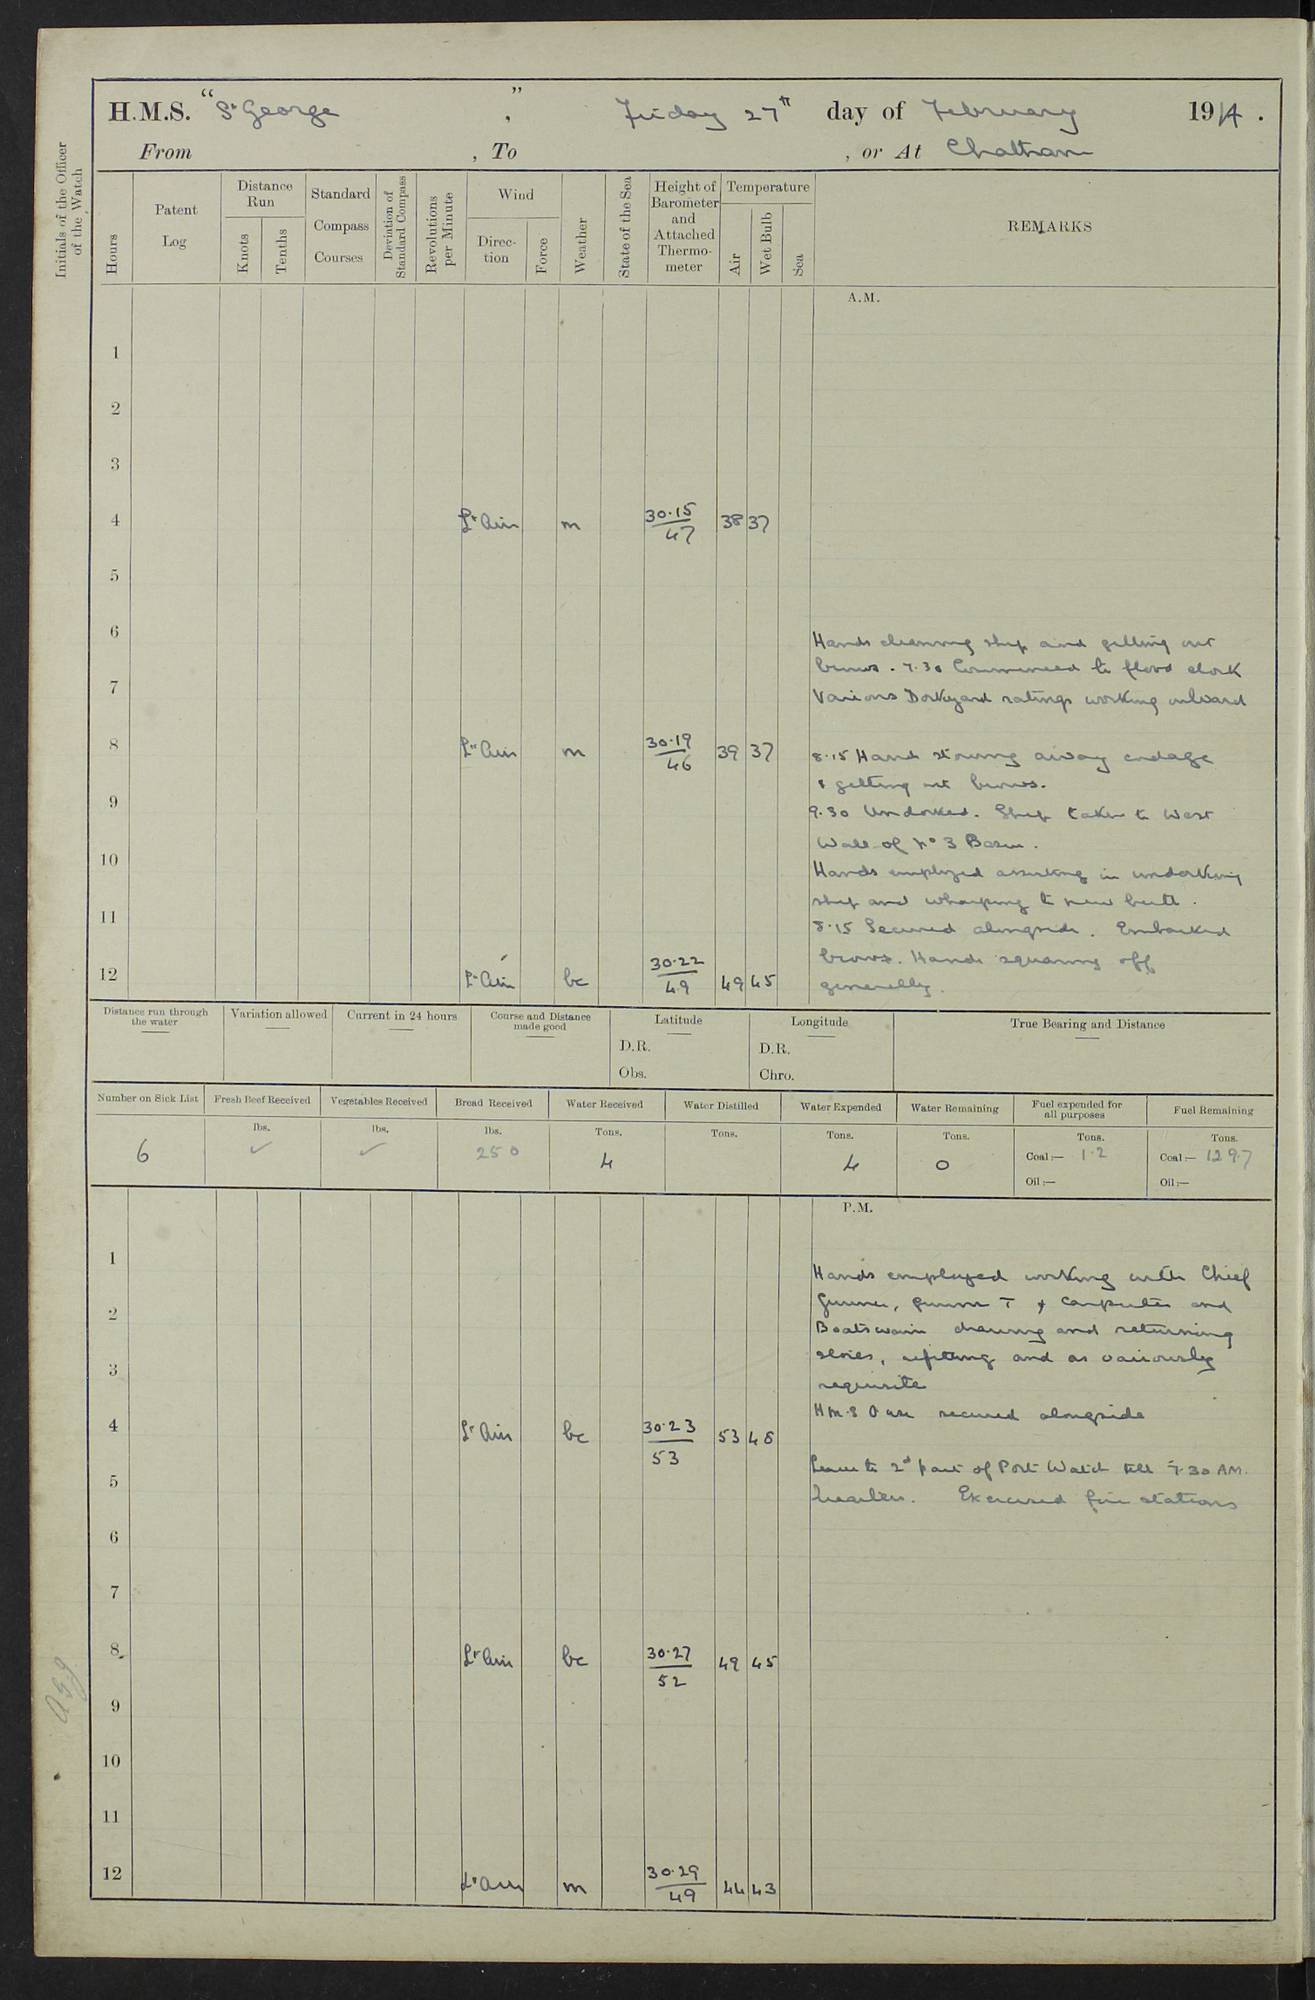 H.M.S. "St George", Friday 27th day of February 1914.
From , To , or At Chatham
Initials of the Officer of the Watch
Hours
Patent Log
Distance Run
Knots
Tenths
Standard Compass Courses
Deviation of Standard Compass
Revolutions per Minute
Wind
Direction
Force
Weather
State of the Sea
Height of Barometer and Attached Thermometer
Temperature
Air
Wet Bulb
Sea
REMARKS
A.M.
1
2
3
4 Lt Airs m 30.15 47 38 37
5
6
Hands cleaning ship and getting out
brows. 7.30 Commenced to flood dock
7
Various Dockyard ratings working onboard
8 Lt Airs m 30.19 46 39 37
8.15 Hands stowing away cordage
& getting out brows.
9
9.30 Undocked. Ship taken to West
Wall of No 3 Basin.
10
Hands employed assisting in undocking
ship and wharping to new berth.
11
8.15 Secured alongside. Embarked
brows. Hands squaring off
12 Lt Airs bc 30.22 49 49 45
generally.
Distance run through the water
Variation allowed
Current in 24 hours
Course and Distance made good
Latitude
D.R.
Obs.
Longitude
D.R.
Chro.
True Bearing and Distance
Number on Sick List
Fresh Beef Received
Vegetables Received
Bread Received
Water Received
Water Distilled
Water Expended
Water Remaining
Fuel expended for all purposes
Fuel Remaining
6
lbs. ✓
lbs. ✓
lbs. 250
Tons. 4
Tons.
Tons. 4
Tons. 0
Tons. Coal:— 1.2
Oil:—
Tons. Coal:— 1297
Oil:—
P.M.
1
Hands employed working with Chief
2
Gunner, Gunner T & Carpenter and
Boatswain drawing and returning
3
stores, refitting and as variously
requisite
H.M.S. secured alongside
4 Lt Airs bc 30.23 53 53 48
Leave to 2d part of Port Watch till 7.30 AM.
5
Exercised fire stations
6
7
8 Lt Airs bc 30.27 52 49 45
9
10
11
12 Lt Airs m 30.29 49 44 43